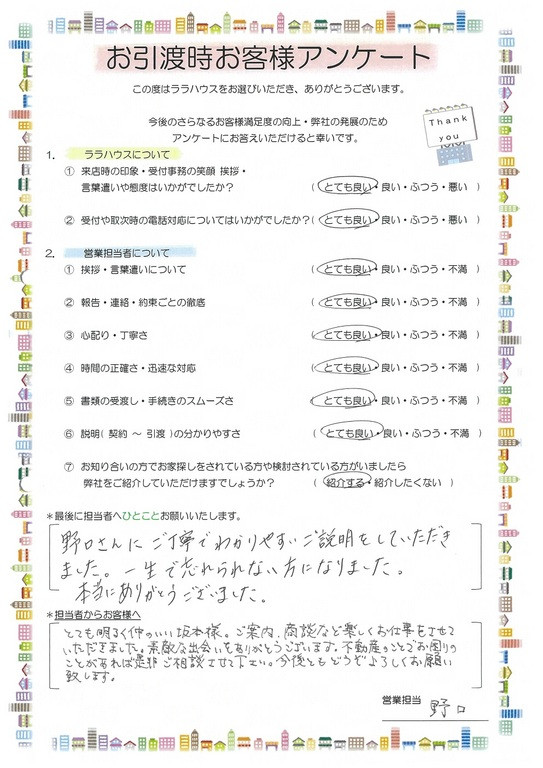 お引渡時お客様アンケート
この度はララハウスをお選びいただき、ありがとうございます。
今後のさらなるお客様満足度の向上・弊社の発展のため
アンケートにお答えいただけると幸いです。
Thank
you
1. ララハウスについて
① 来店時の印象・受付事務の笑顔 挨拶・
言葉遣いや態度はいかがでしたか? ( とても良い・良い・ふつう・悪い )
② 受付や取次時の電話対応についてはいかがでしたか? ( とても良い・良い・ふつう・悪い )
2. 営業担当者について
① 挨拶・言葉遣いについて ( とても良い・良い・ふつう・不満 )
② 報告・連絡・約束ごとの徹底 ( とても良い・良い・ふつう・不満 )
③ 心配り・丁寧さ ( とても良い・良い・ふつう・不満 )
④ 時間の正確さ・迅速な対応 ( とても良い・良い・ふつう・不満 )
⑤ 書類の受渡し・手続きのスムーズさ ( とても良い・良い・ふつう・不満 )
⑥ 説明( 契約 ～ 引渡 )の分かりやすさ ( とても良い・良い・ふつう・不満 )
⑦ お知り合いの方でお家探しをされている方や検討されている方がいましたら
弊社をご紹介していただけますでしょうか? ( 紹介する・紹介したくない )
＊最後に担当者へひとことお願いいたします。
野口さんに ご丁寧でわかりやすいご説明をしていただき
ました。一生で忘れられない方になりました。
本当にありがとうございました。
＊担当者からお客様へ
とても明るく仲のいい坂本様。ご案内、商談など楽しくお仕事をさせて
いただきました。素敵な出会いをありがとうございます。不動産のことでお困りの
ことがあれば是非ご相談させて下さい。今後ともどうぞよろしくお願い
致します。
営業担当 野口